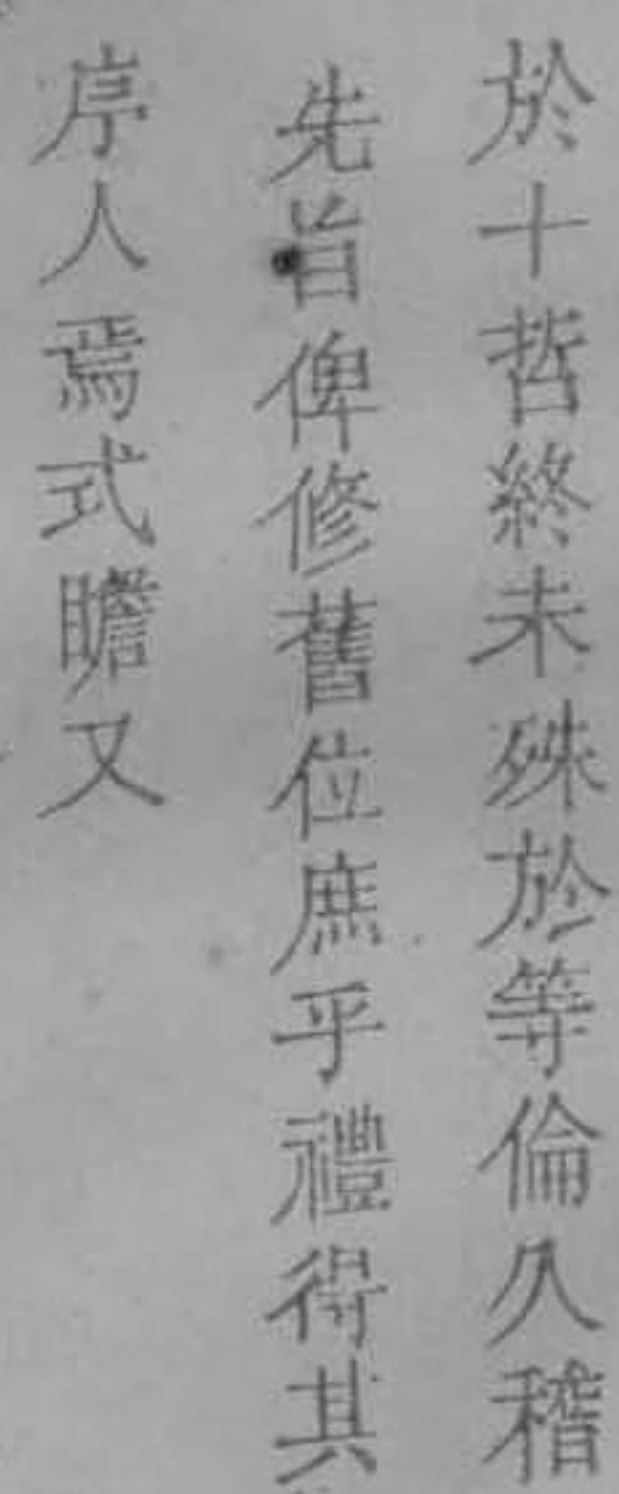 於十哲終未殊於等倫久稽
先旨俾修舊位庶乎禮得其
序人焉式瞻又